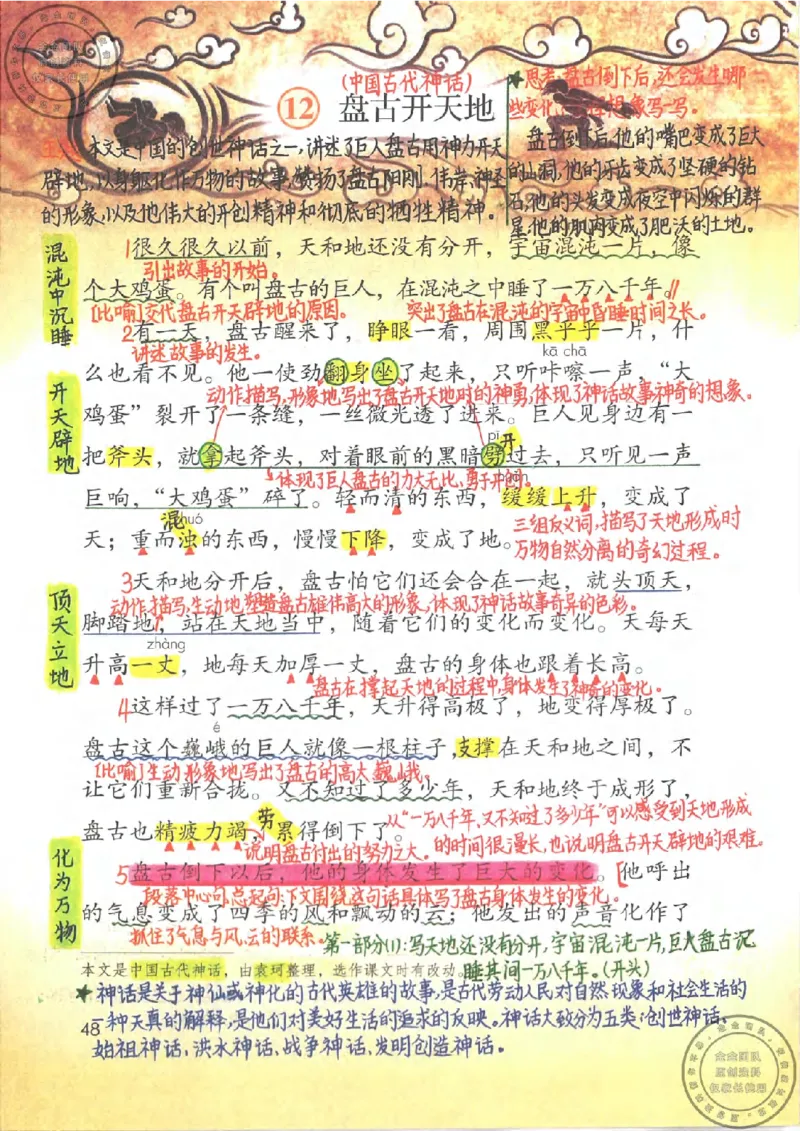 (中国古代神话)
12 盘古开天地
★思考:盘古倒下后,还会发生哪
些变化 想象写一写。
盘古倒下后,他的嘴巴变成了巨大
的山洞,他的牙齿变成了坚硬的钻
石,他的头发变成夜空中闪烁的群
星,他的肌肉变成了肥沃的土地。
本文是中国的创世神话之一,讲述了巨人盘古用神力开天
辟地,以身躯化作万物的故事,赞扬了盘古阳刚、伟岸、神圣
的形象,以及他伟大的开创精神和彻底的牺牲精神。
混沌中沉睡
1很久很久以前,天和地还没有分开,宇宙混沌一片,像
引出故事的开始。
个大鸡蛋。有个叫盘古的巨人,在混沌之中睡了一万八千年。//
[比喻]交代盘古开天辟地的原因。 突出了盘古在混沌的宇宙中昏睡时间之长。
2有一天,盘古醒来了,睁眼一看,周围黑乎乎一片,什
讲述故事的发生。
kā chā
么也看不见。他一使劲翻身坐了起来,只听咔嚓一声,“大
开天辟地
动作描写,形象地写出了盘古开天地时的神勇,体现了神话故事神奇的想象。
鸡蛋”裂开了一条缝,一丝微光透了进来。巨人见身边有一
pī 开
把斧头,就拿起斧头,对着眼前的黑暗劈过去,只听见一声
体现了巨人盘古的力大无比,勇于开创。
巨响,“大鸡蛋”碎了。轻而清的东西,缓缓上升,变成了
混 zhuó
三组反义词,描写了天地形成时
天;重而浊的东西,慢慢下降,变成了地。
万物自然分离的奇幻过程。
3天和地分开后,盘古怕它们还会合在一起,就头顶天,
顶天立地
动作描写,生动地塑造盘古雄伟高大的形象,体现了神话故事奇异的色彩。
脚踏地,站在天地当中,随着它们的变化而变化。天每天
zhàng
升高一丈,地每天加厚一丈,盘古的身体也跟着长高。
盘古在撑起天地的过程中,身体发生了神奇的变化。
4这样过了一万八千年,天升得高极了,地变得厚极了。
é
盘古这个巍峨的巨人就像一根柱子,支撑在天和地之间,不
[比喻]生动形象地写出了盘古的高大、巍峨。
让它们重新合拢。又不知过了多少年,天和地终于成形了,
劳
从“一万八千年,又不知过了多少年”可以感受到天地形成
盘古也精疲力竭,累得倒下了。
说明盘古付出的努力之大。 的时间很漫长,也说明盘古开天辟地的艰难。
化为万物
5盘古倒下以后,他的身体发生了巨大的变化。[他呼出
段落中心句,总起句,下文围绕这句话具体写了盘古身体发生的变化。
的气息变成了四季的风和飘动的云;他发出的声音化作了
抓住了气息与风、云的联系。
第一部分(1):写天地还没有分开,宇宙混沌一片,巨人盘古沉
本文是中国古代神话,由袁珂整理,选作课文时有改动。
睡其间一万八千年。(开头)
★神话是关于神仙或神化的古代英雄的故事,是古代劳动人民对自然现象和社会生活的
48
一种天真的解释,是他们对美好生活的追求的反映。神话大致分为五类:创世神话、
始祖神话、洪水神话、战争神话、发明创造神话。